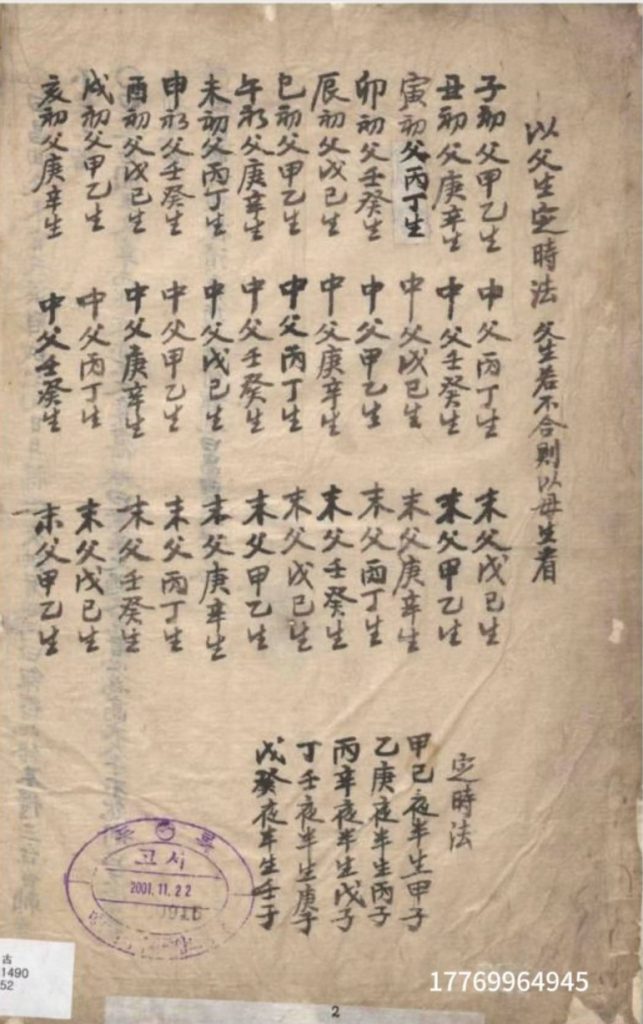 以父生定時法 父生若不合則以母生看
子初父甲乙生 中父丙丁生 末父戊己生
丑初父庚辛生 中父壬癸生 末父甲乙生
寅初父丙丁生 中父戊己生 末父庚辛生
卯初父壬癸生 中父甲乙生 末父丙丁生
辰初父戊己生 中父庚辛生 末父壬癸生
巳初父甲乙生 中父丙丁生 末父戊己生
午初父庚辛生 中父壬癸生 末父甲乙生
未初父丙丁生 中父戊己生 末父庚辛生
申初父壬癸生 中父甲乙生 末父丙丁生
酉初父戊己生 中父庚辛生 末父壬癸生
戌初父甲乙生 中父丙丁生 末父戊己生
亥初父庚辛生 中父壬癸生 末父甲乙生
定時法
甲己夜半生甲子
乙庚夜半生丙子
丙辛夜半生戊子
丁壬夜半生庚子
戊癸夜半生壬子
고서
2001.11.22
古
1490
52
17769964945
2